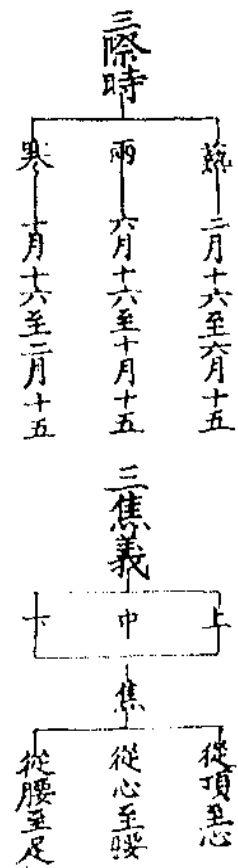 三際時
熱 二月十六至六月十五
雨 六月十六至十月十五
寒 十月十六至二月十五
三焦義
上
中
下
焦
從頂至心
從心至腰
從腰至足